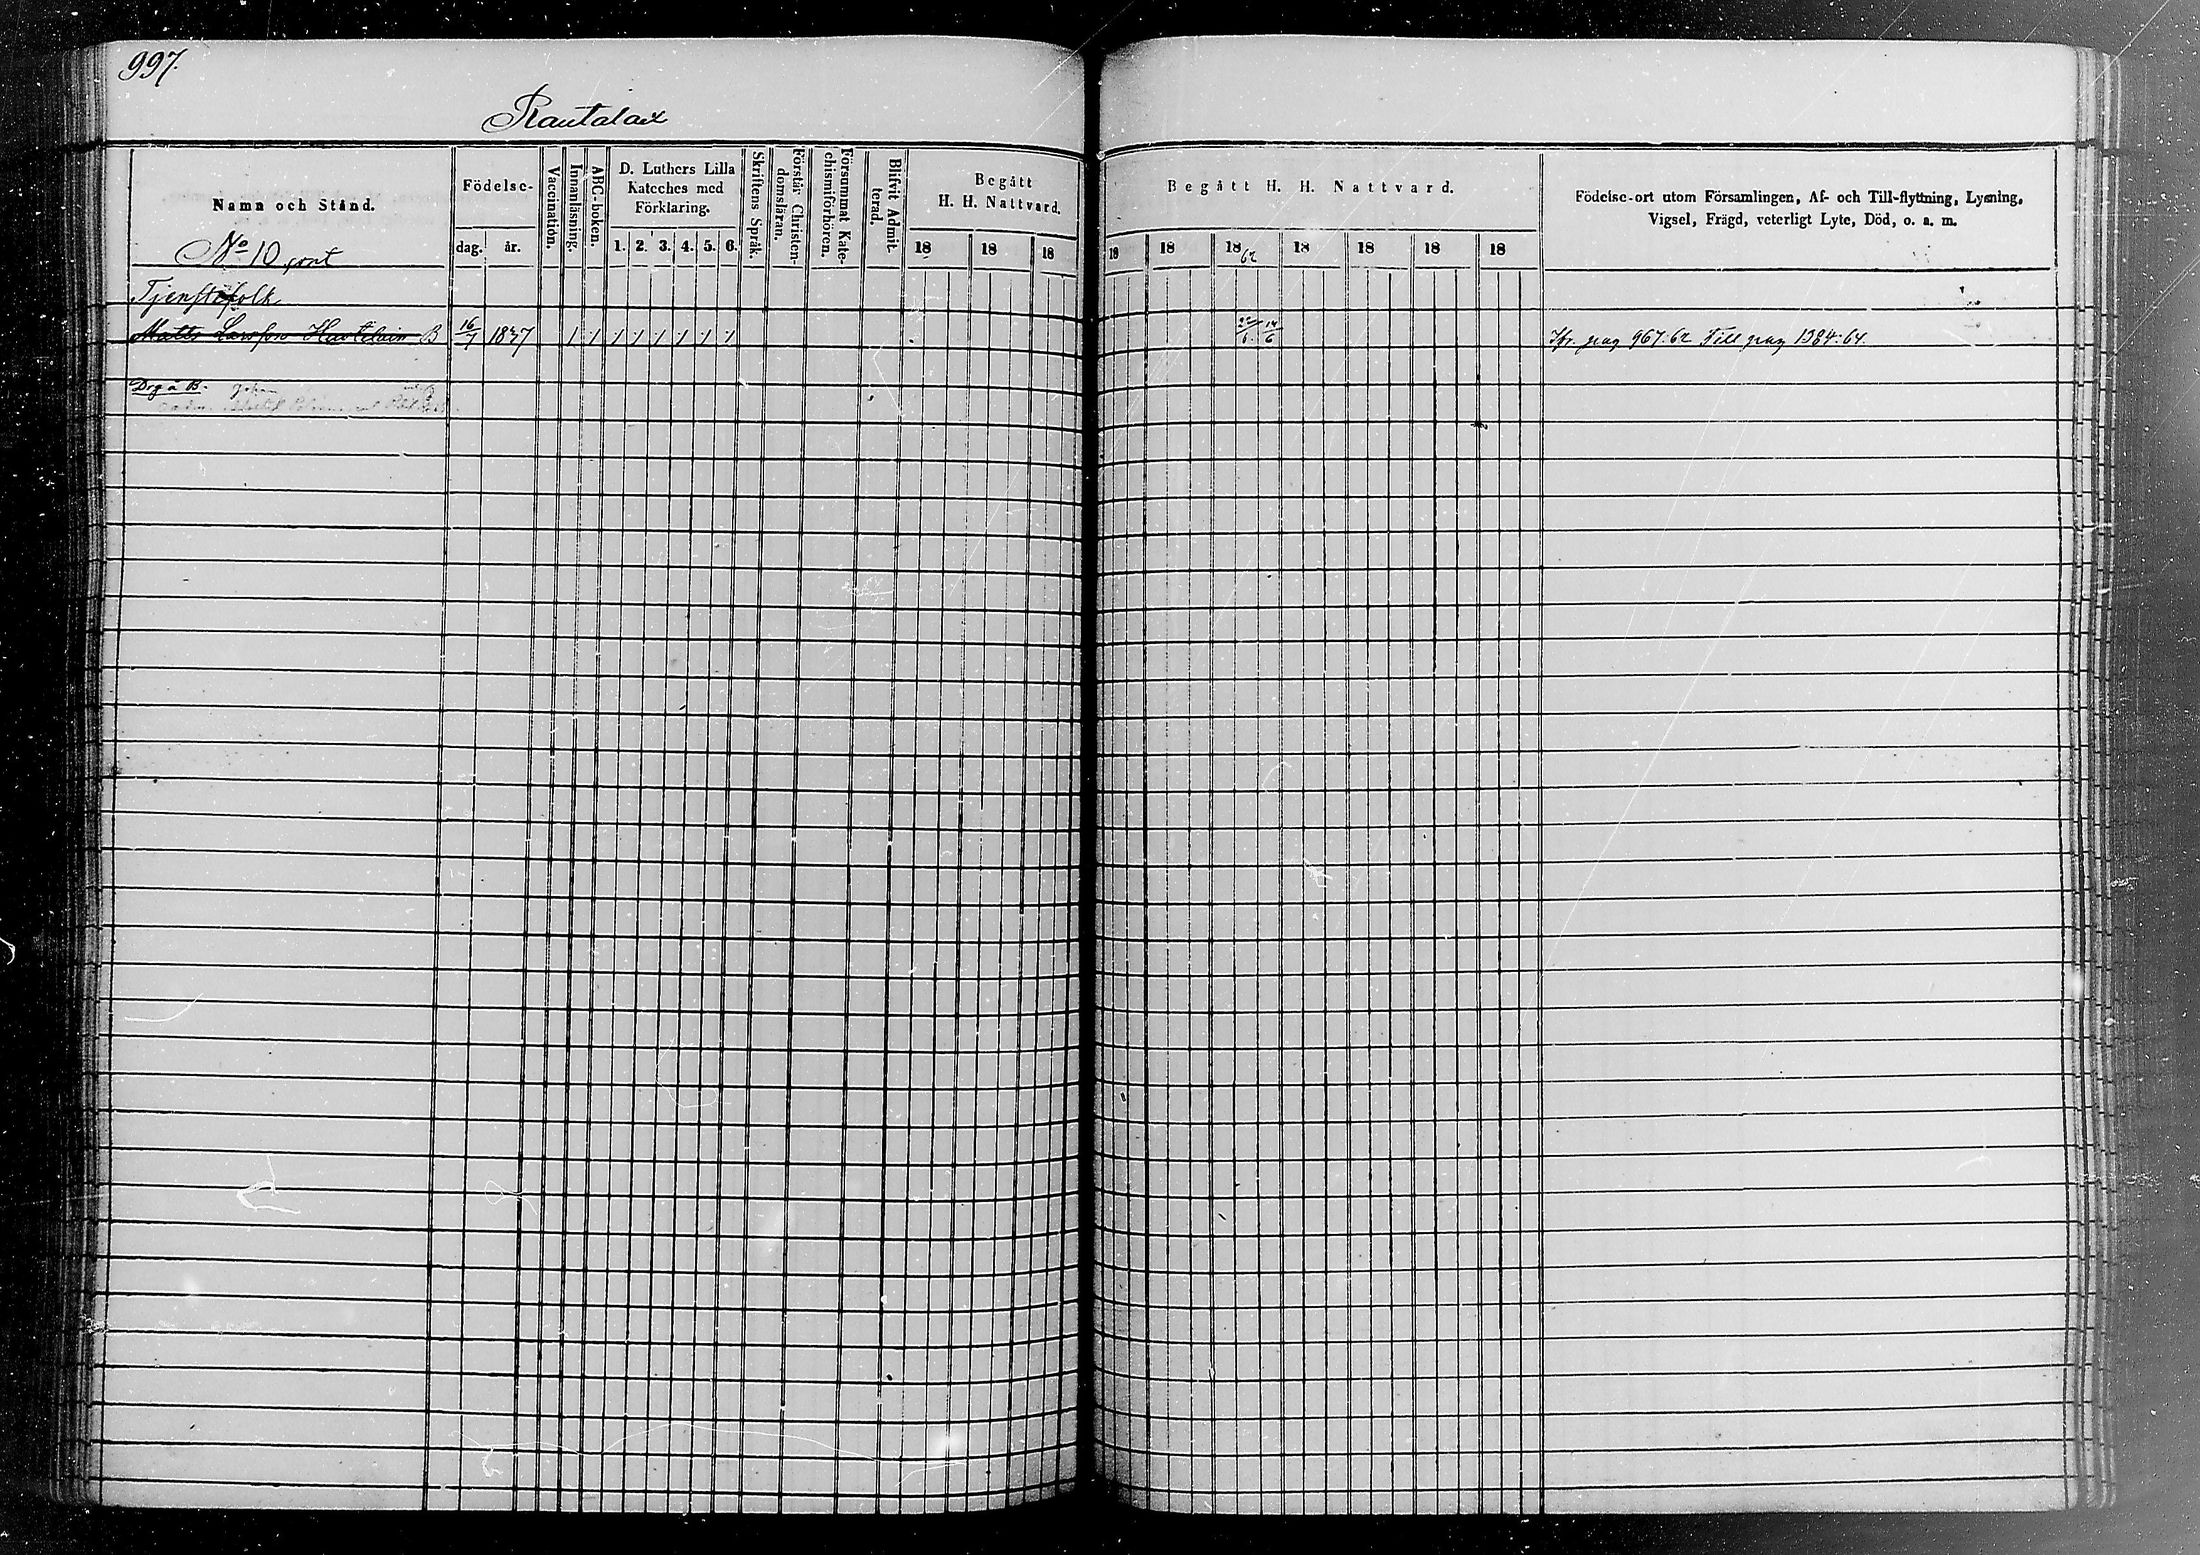 997.
Rautalax
Namn och Stånd.
Födelse-
dag. år.
Vaccination.
Innanläsning.
ABC-boken.
D. Luthers Lilla
Kateches med
Förklaring.
1. 2. 3. 4. 5. 6.
Skriftens Språk.
Förstår Christen-
domsläran.
Försummat Kate-
chismiförhören.
Blifvit Admit-
terad.
Begått
H. H. Nattvard.
18 18 18
Begått H. H. Nattvard.
18 18 1862 18 18 18 18
Födelse-ort utom Församlingen, Af- och Till-flyttning, Lysning,
Vigsel, Frägd, veterligt Lyte, Död, o. a. m.
No 10 cont
Tjenstefolk
Matts Larsson B 16/7 1837 1 1 1 1 1 1 1 1 Fr. pag 967:62 Till pag 1384:64.
Drg a B. Johan